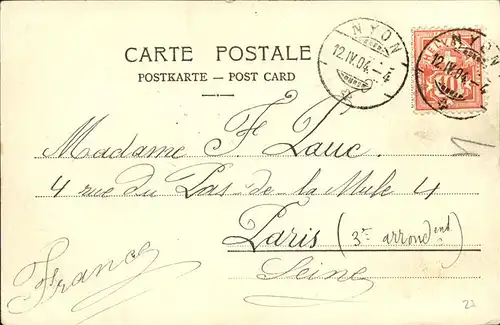 CARTE POSTALE
POSTKARTE — POST CARD
NYON
12.IV.04.-4
NYON
12.IV.04.-4
10
Madame F. Lauc.
4 rue du Pas-de-la-Mule 4
Paris (3e arrondent.)
Seine
France
22